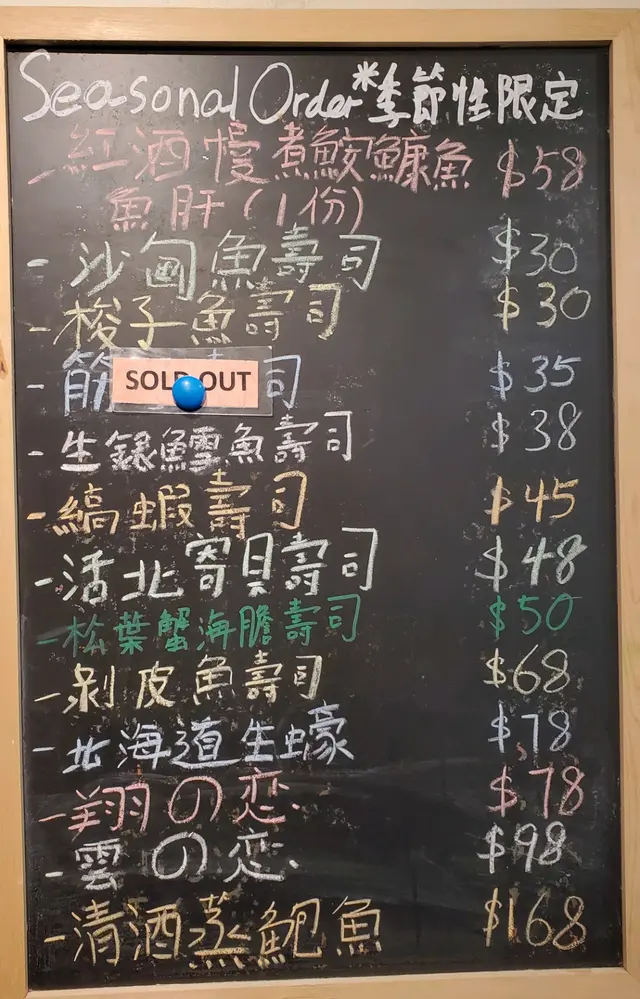 Seasonal Order *季節性限定
- 紅酒慢煮鮟鱇魚 $58
魚肝(1份)
- 沙甸魚壽司 $30
- 梭子魚壽司 $30
- 筋 SOLD OUT 司 $35
- 生銀鱈魚壽司 $38
- 縞蝦壽司 $45
- 活北寄貝壽司 $48
- 松葉蟹海膽壽司 $50
- 剝皮魚壽司 $68
- 北海道生蠔 $78
- 翔の恋. $78
- 雲の恋. $98
- 清酒蒸鮑魚 $168